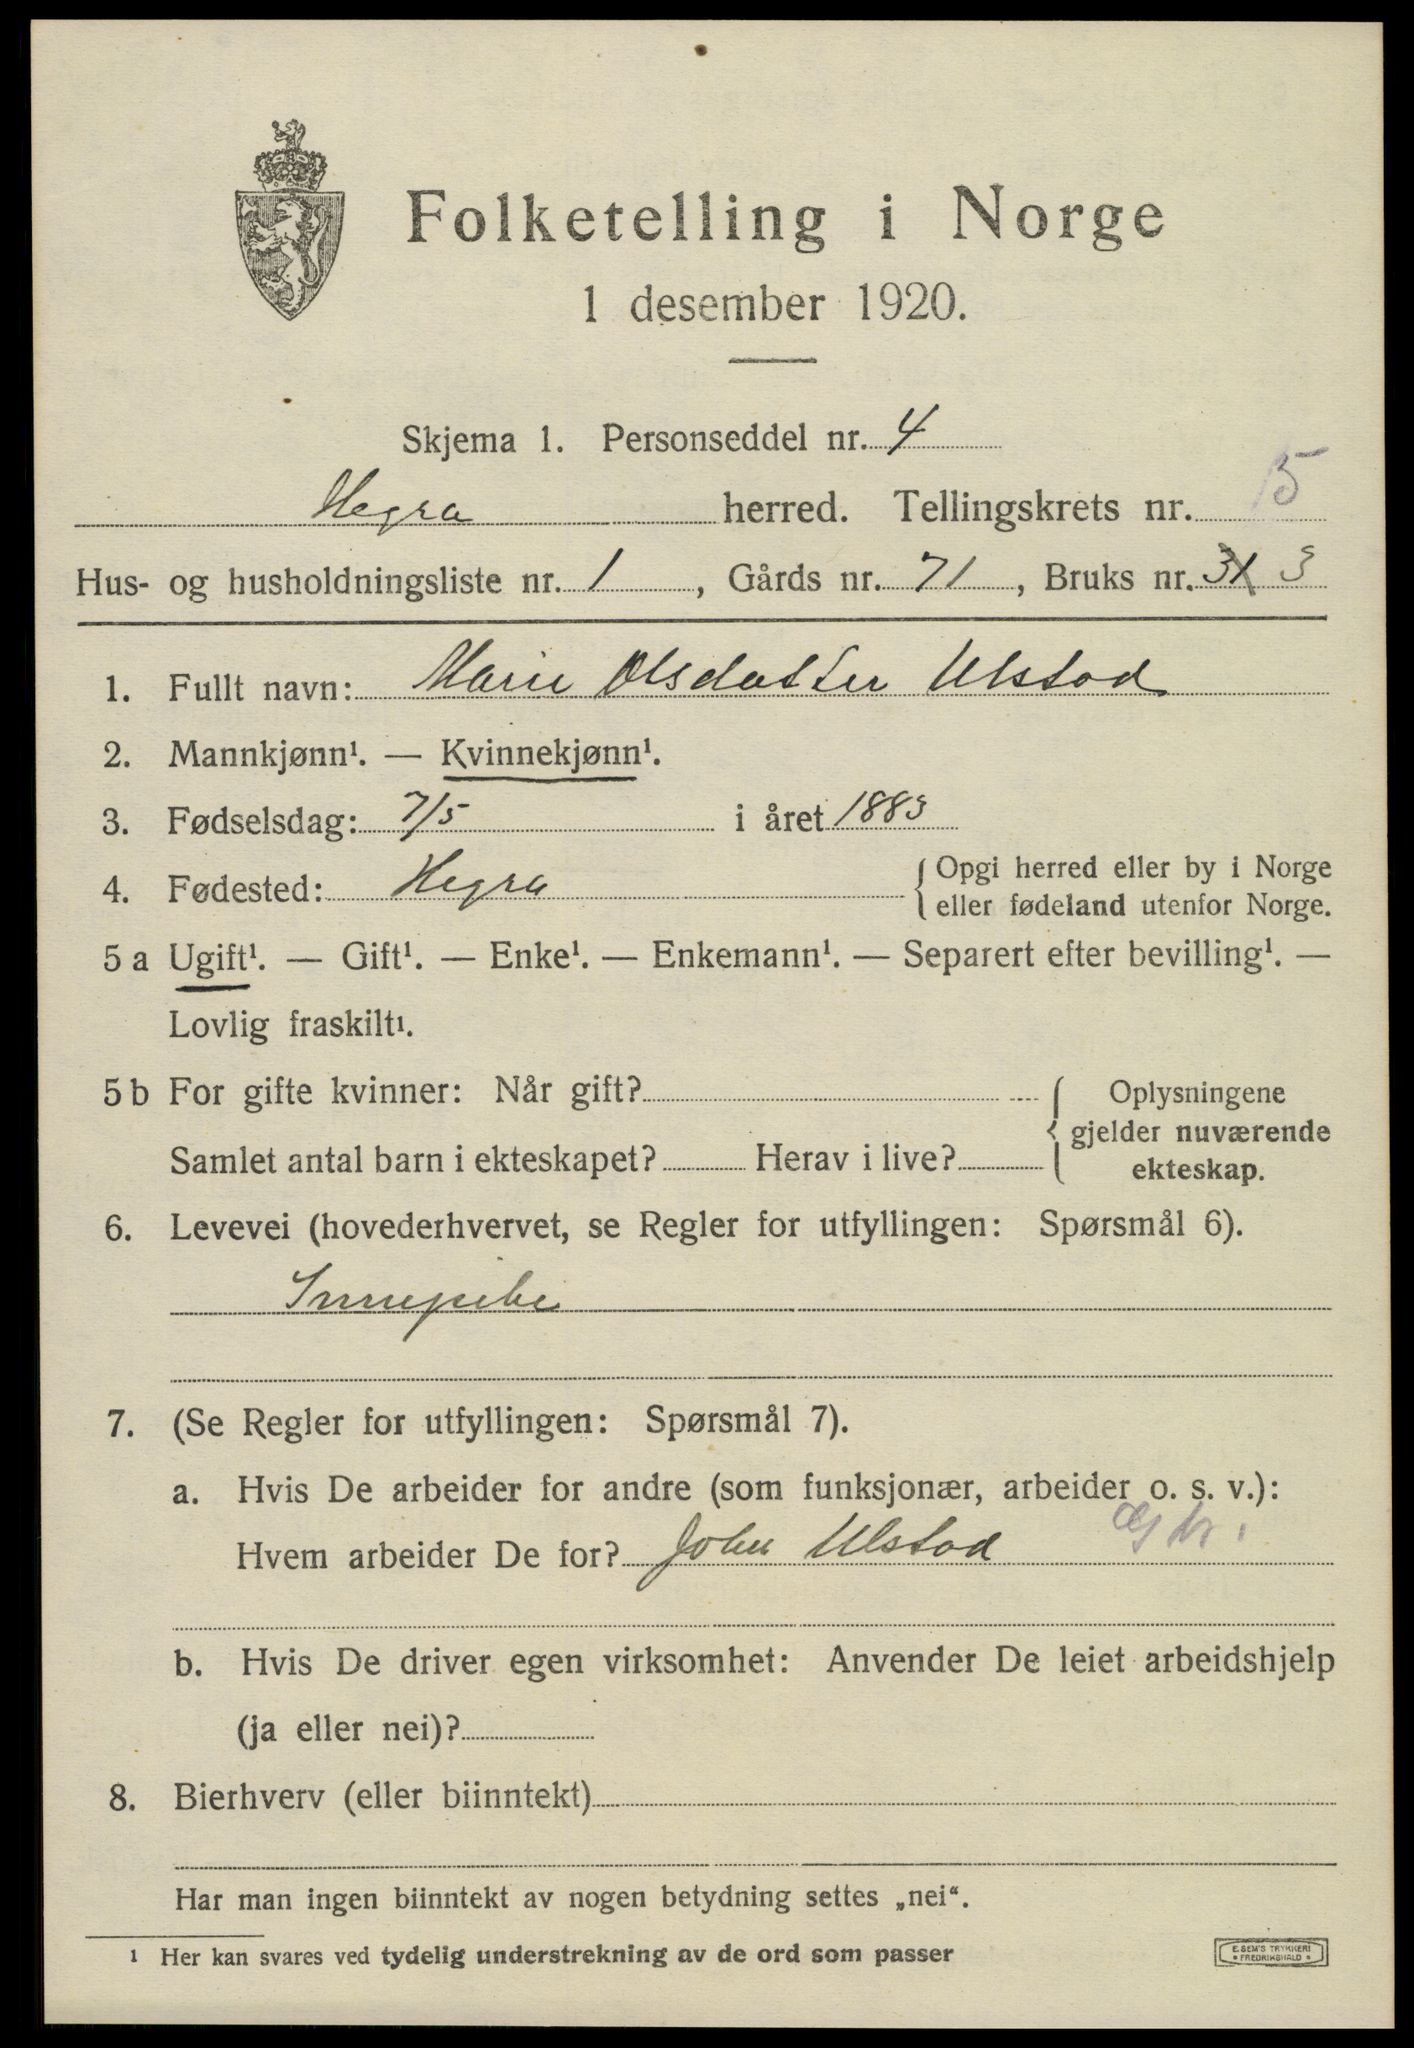 Folketelling i Norge
1 desember 1920.
Skjema 1. Personseddel nr. 4
Hegra herred. Tellingskrets nr. 15
Hus- og husholdningsliste nr. 1, Gårds nr. 71, Bruks nr. 31 3
1. Fullt navn: Marie Olsdatter Ulstad
2. Mannkjønn¹. — Kvinnekjønn¹.
3. Fødselsdag: 7/5 i året 1883
4. Fødested: Hegra { Opgi herred eller by i Norge
eller fødeland utenfor Norge.
5 a Ugift¹. — Gift¹. — Enke¹. — Enkemann¹. — Separert efter bevilling¹. —
Lovlig fraskilt¹.
5 b For gifte kvinner: Når gift? { Oplysningene
gjelder nuværende
Samlet antal barn i ekteskapet? Herav i live? ekteskap.
6. Levevei (hovederhvervet, se Regler for utfyllingen: Spørsmål 6).
7. (Se Regler for utfyllingen: Spørsmål 7).
a. Hvis De arbeider for andre (som funksjonær, arbeider o. s. v.):
Hvem arbeider De for? John Ulstad
b. Hvis De driver egen virksomhet: Anvender De leiet arbeidshjelp
(ja eller nei)?
8. Bierhverv (eller biinntekt)
Har man ingen biinntekt av nogen betydning settes „nei“.
¹ Her kan svares ved tydelig understrekning av de ord som passer
E. SEM'S TRYKKERI
• FREDRIKSHALD •